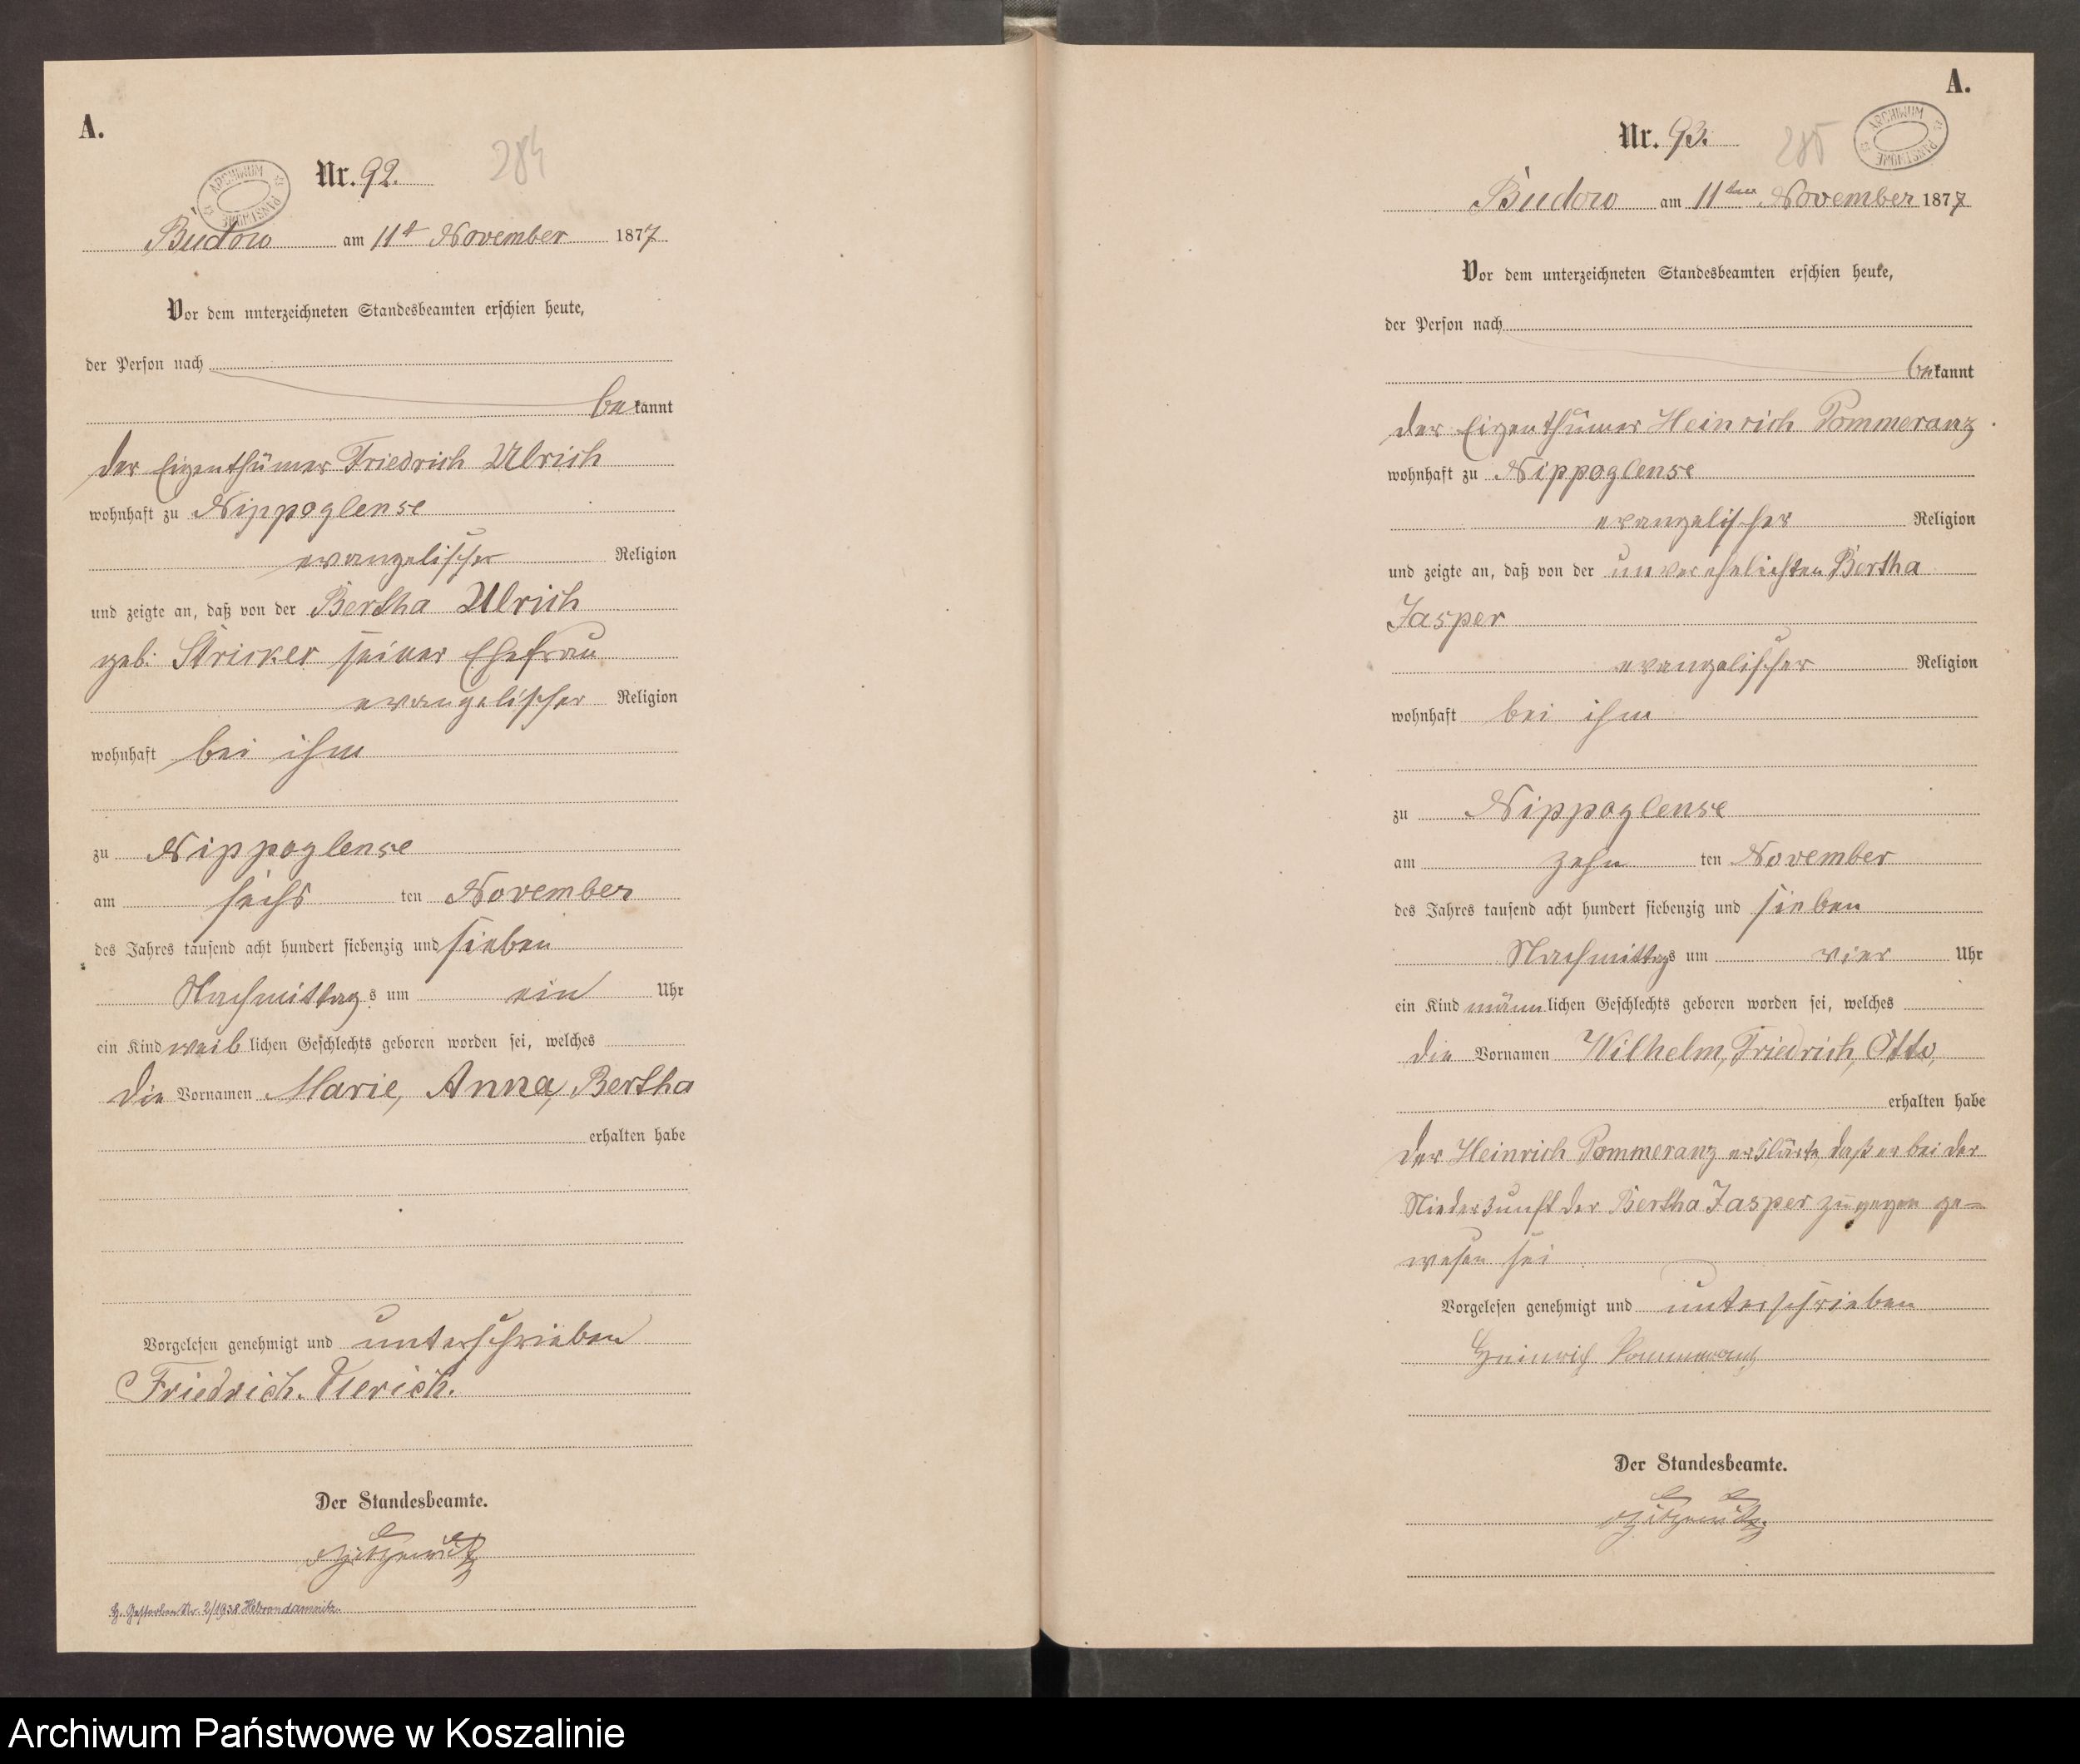 A.
Nr. 92.
284
ARCHIWUM PAŃSTWOWE
Budow am 11t November 1877
Vor dem unterzeichneten Standesbeamten erschien heute,
der Person nach
bekannt
der Eigenthümer Friedrich Ulrich
wohnhaft zu Nippoglense
evangelischer Religion
und zeigte an, daß von der Bertha Ulrich
geb. Stricker seiner Ehefrau
evangelischer Religion
wohnhaft bei ihm
zu Nippoglense
am sechs ten November
des Jahres tausend acht hundert siebenzig und sieben
Nachmittags um ein Uhr
ein Kind weiblichen Geschlechts geboren worden sei, welches
die Vornamen Marie, Anna, Bertha
erhalten habe
Vorgelesen genehmigt und unterschrieben
Friedrich. Ulerich.
Der Standesbeamte.
Gestorben Nr. 2/1938 Hebrondamnitz
A.
Nr. 93.
285
ARCHIWUM PAŃSTWOWE
Budow am 11ten November 1877
Vor dem unterzeichneten Standesbeamten erschien heute,
der Person nach
bekannt
der Eigenthümer Heinrich Pommeranz
wohnhaft zu Nippoglense
evangelischer Religion
und zeigte an, daß von der unverehelichten Bertha
Jasper
evangelischer Religion
wohnhaft bei ihm
zu Nippoglense
am zehn ten November
des Jahres tausend acht hundert siebenzig und sieben
Nachmittags um vier Uhr
ein Kind männlichen Geschlechts geboren worden sei, welches
die Vornamen Wilhelm, Friedrich, Otto,
erhalten habe
der Heinrich Pommeranz erklärte, daß er bei der
Niederkunft der Bertha Jasper zugegen ge=
wesen sei
Vorgelesen genehmigt und unterschrieben
Heinrich Pommeranz
Der Standesbeamte.
Archiwum Państwowe w Koszalinie